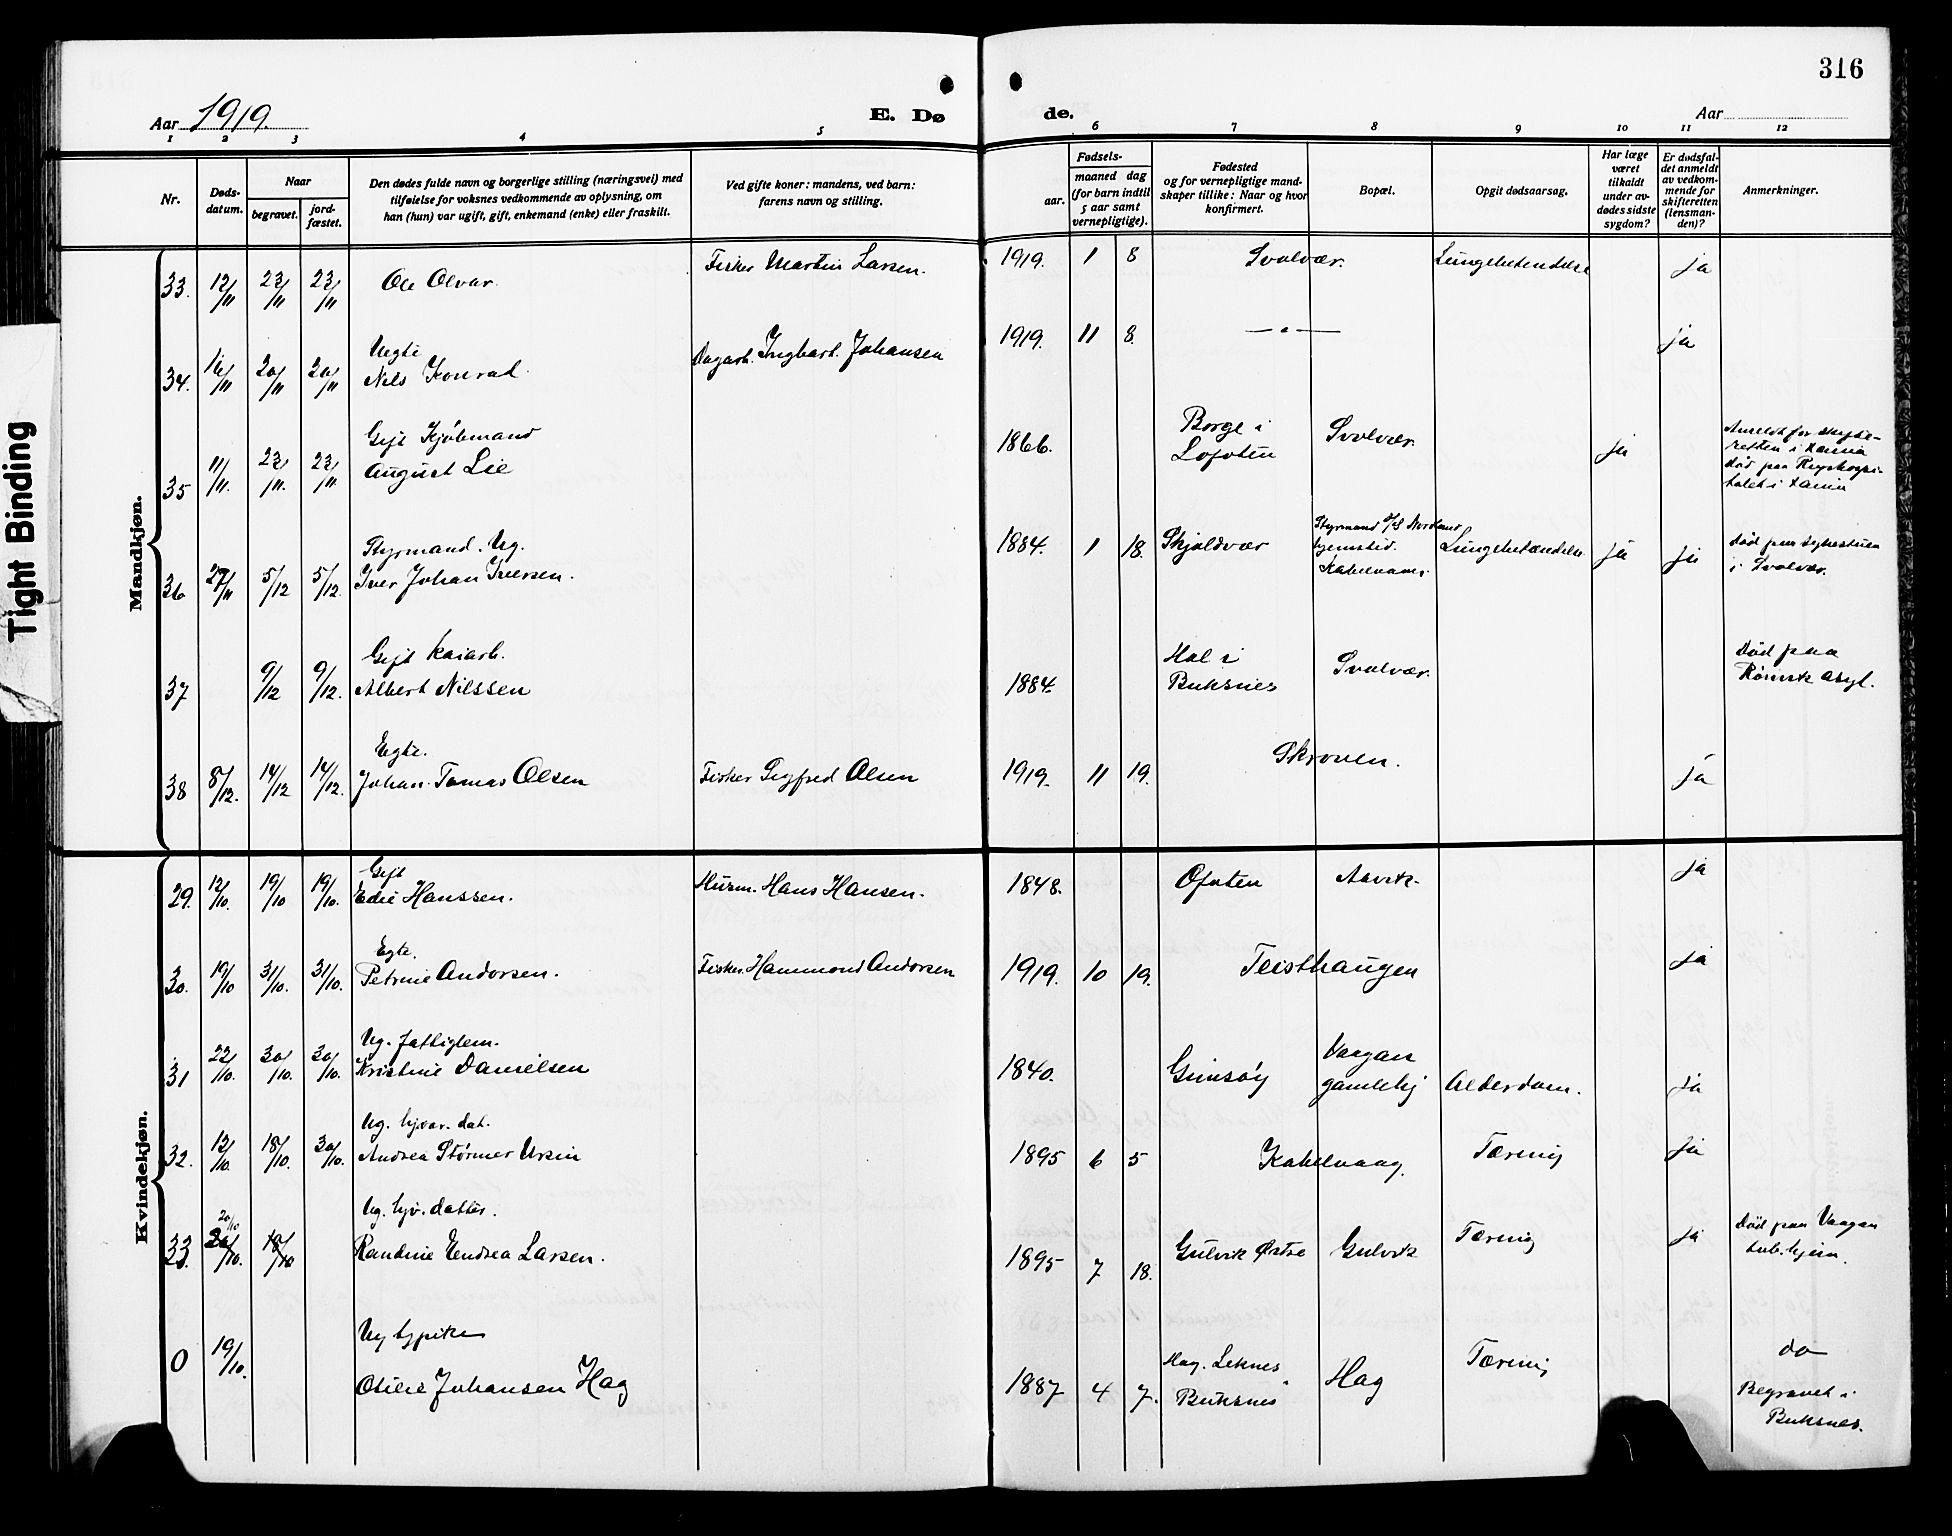 316
Aar 1919.
E. Dø
de.
Aar
1 2 3 4 5 6 7 8 9 10 11 12
Nr.
Døds-
datum.
Naar
begravet.
jord-
fæstet.
Den dødes fulde navn og borgerlige stilling (næringsvei) med
tilføielse for voksnes vedkommende av oplysning, om
han (hun) var ugift, gift, enkemand (enke) eller fraskilt.
Ved gifte koner: mandens, ved barn:
farens navn og stilling.
Fødsels-
aar.
maaned dag
(for barn indtil
5 aar samt
vernepligtige).
Fødested
og for vernepligtige mand-
skaper tillike: Naar og hvor
konfirmert.
Bopæl.
Opgit dødsaarsag.
Har læge
været
tilkaldt
under av-
dødes sidste
sygdom?
Er dødsfal-
det anmeldt
av vedkom-
mende for
skifteretten
(lensman-
den)?
Anmerkninger.
Tight Binding
Mandkjøn.
33. 12/11 23/11 23/11 Ole Olvar. Fisker Martin Larsen. 1919. 1 8 Svolvær. Lungebetendelse ja
Uegte
34. 20/11 20/11 Nils Konrad. Dagarb. Ingbart Johansen 1919. 11 8. — " — ja
Gift Kjøbmand
35 11/11. 23/11. 23/11 August Lie 1866. Borge i
Lofoten Svolvær ja
død paa
Styrmand. Ug.
36 27/11 5/12 5/12. Iver Johan Iversen. 1884. 1 18. Skjoldvær Styrmand
hjemsted.
Kabelvaag. Lungebetændelse ja ja død paa sykestuen
i Svolvær.
Gift kaiarb.
37 9/12 9/12. Albert Nilssen 1884. Hol i
Buksnes Svolvær. Død paa
Rønvik asyl.
Egte.
38 8/12. 14/12 14/12. Johan Tomas Olsen Fisker Sigfred Olsen 1919. 11 19. Skroven. ja
Kvindekjøn.
Gift
29. 12/10. 19/10 19/10. Edie Hanssen. Husm. Hans Hansen. 1848. Ofoten ja
Egte.
30. 19/10 31/10. 31/10. Petrine Andorsen. Fisker Hammond Andorsen 1919. 10 19. Teisthaugen ja
Ug. fattiglem.
31 22/10. 30/10. 30/10. Kristine Danielsen 1840. Gimsøy Vaagan
gamlehj Alderdom. ja
Ug. hjvær. dat.
32. 13/10. 18/10. 30/10. Andrea Størmer Ursin 1895 6 5 Kabelvaag. Tæring ja
Ug. hjv. datter.
33. 20/10 18/10 Randine Endrea Larsen. 1895 7 18. Gulvik Østre Gulvik Tæring ja Død paa Vaagan
tub. hjem.
Ug
0 19/10. Otilie Johansen Hag 1887 4 7. Hag. Leknes
Buksnes Hag Tæring do
Begravet i
Buksnes.